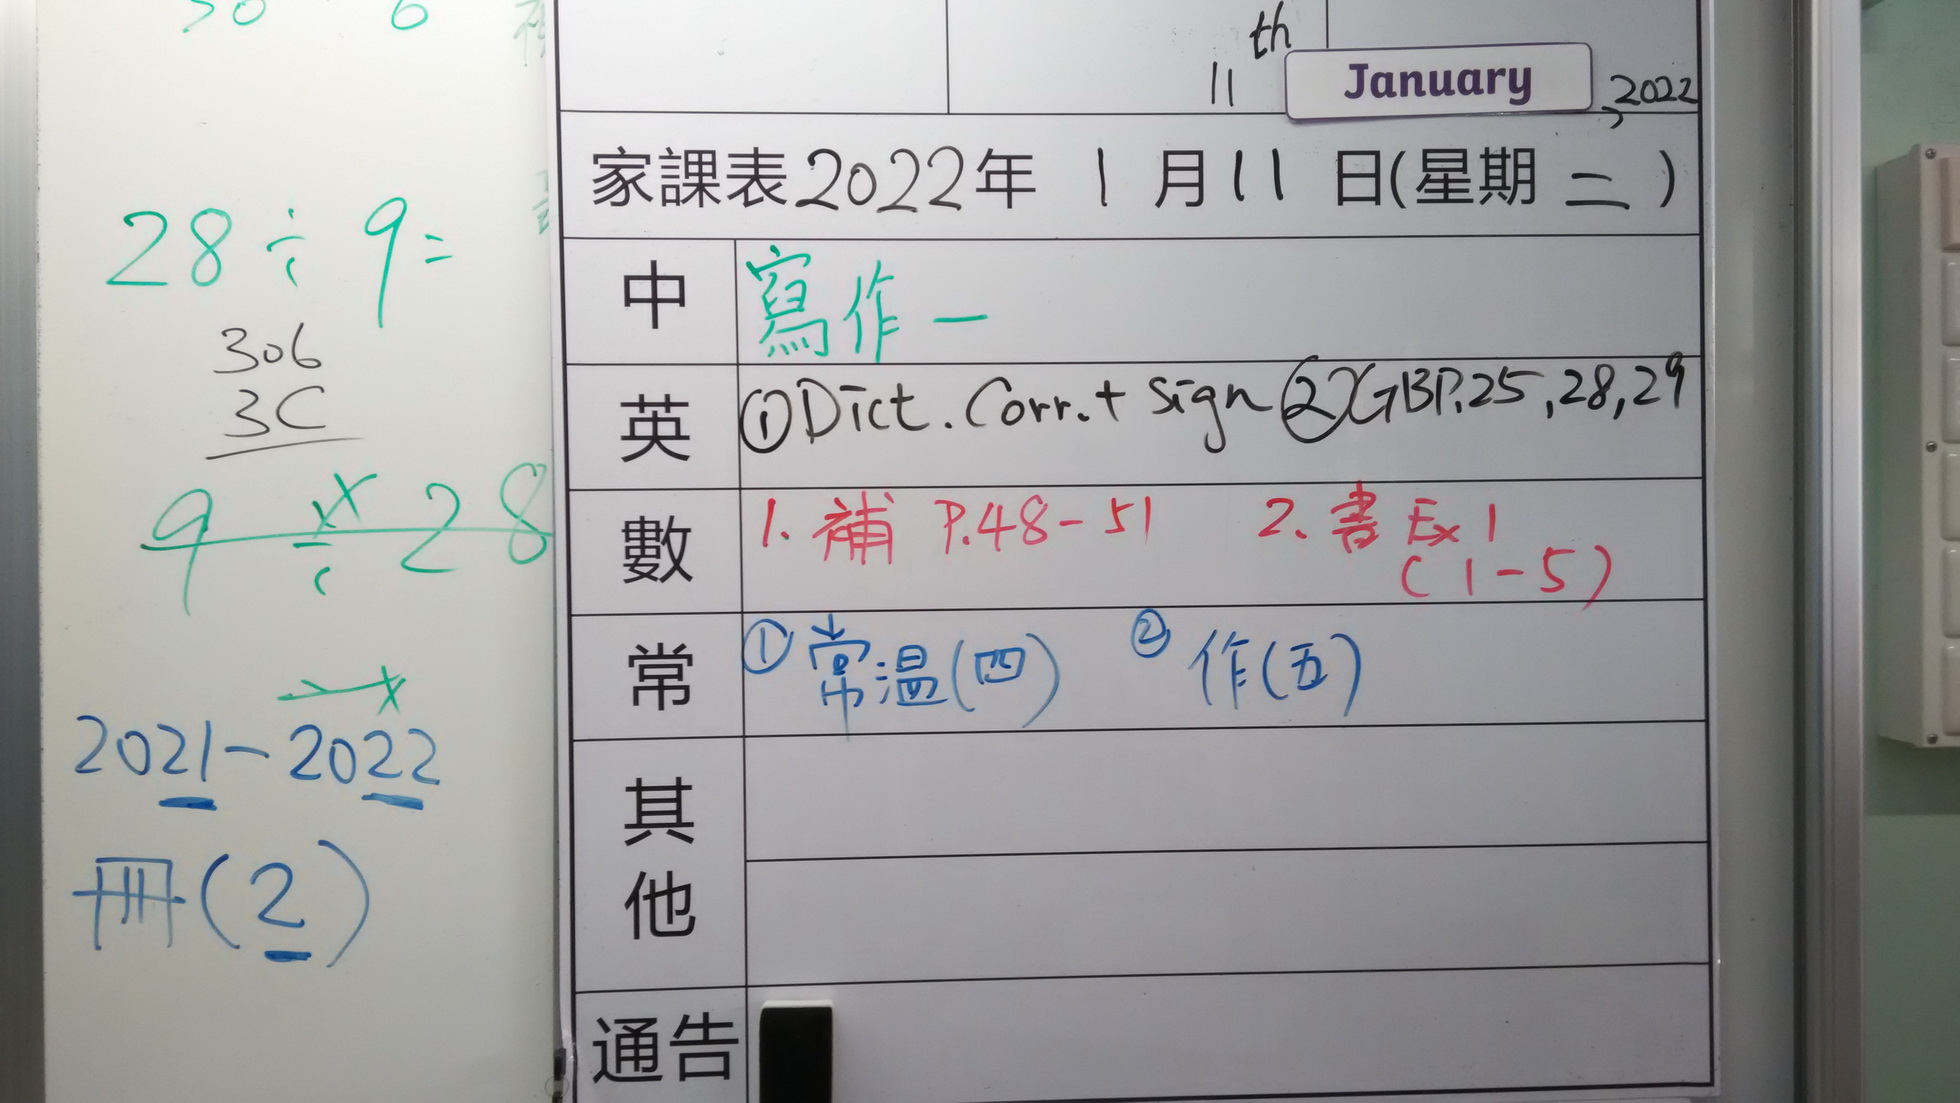 28÷9=
306
3C
9 ÷ 28
2021-2022
冊(2)
11th January, 2022
家課表2022年 1月11日(星期二)
中 寫作一
英 ①Dict. Corr. + sign ②GBP.25,28,29
數 1. 補 P.48-51 2. 書 Ex 1
(1-5)
常 ①常温(四) ②作(五)
其他
通告